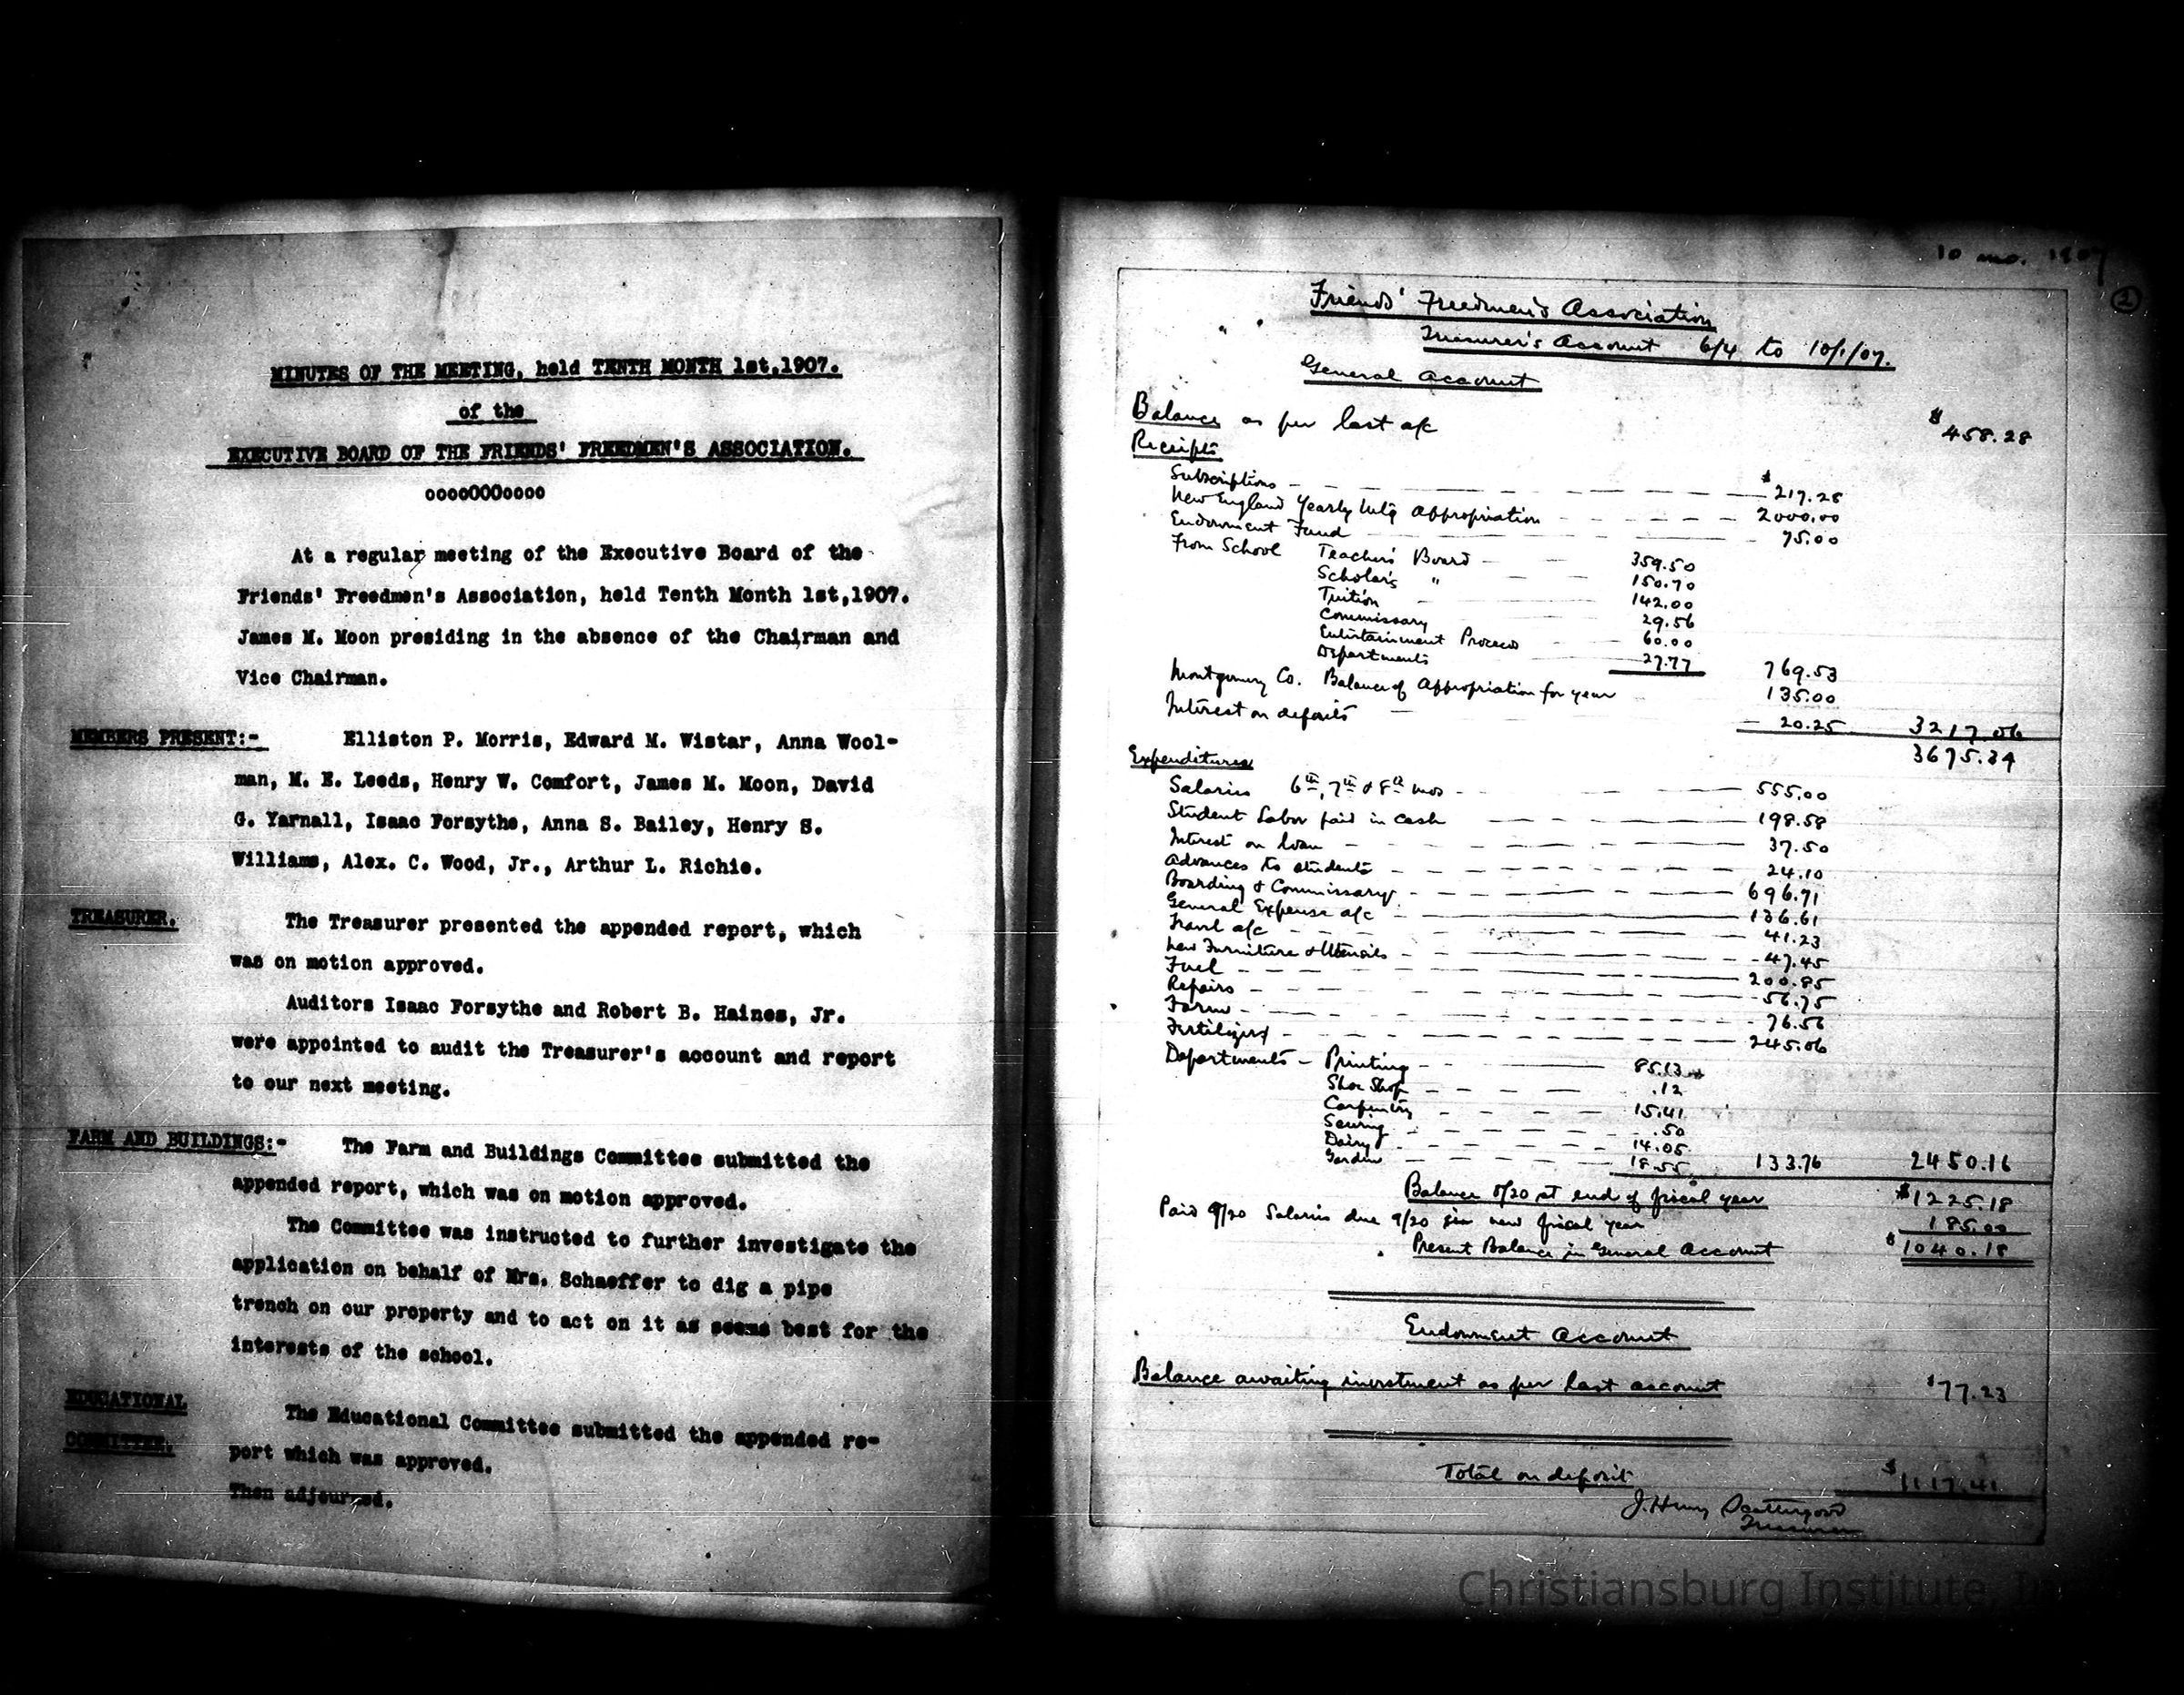 MINUTES OF THE MEETING, held TENTH MONTH 1st,1907.
of the
EXECUTIVE BOARD OF THE FRIENDS' FREEDMEN'S ASSOCIATION.
ooooOOOoooo
At a regular meeting of the Executive Board of the
Friends' Freedmen's Association, held Tenth Month 1st,1907.
James M. Moon presiding in the absence of the Chairman and
Vice Chairman.
MEMBERS PRESENT:- Elliston P. Morris, Edward M. Wistar, Anna Wool-
man, M. E. Leeds, Henry W. Comfort, James M. Moon, David
G. Yarnall, Isaac Forsythe, Anna S. Bailey, Henry S.
Williams, Alex. C. Wood, Jr., Arthur L. Richie.
TREASURER. The Treasurer presented the appended report, which
was on motion approved.
Auditors Isaac Forsythe and Robert B. Haines, Jr.
were appointed to audit the Treasurer's account and report
to our next meeting.
FARM AND BUILDINGS:- The Farm and Buildings Committee submitted the
appended report, which was on motion approved.
The Committee was instructed to further investigate the
application on behalf of Mrs. Schaeffer to dig a pipe
trench on our property and to act on it as seems best for the
interests of the school.
EDUCATIONAL
COMMITTEE. The Educational Committee submitted the appended re-
port which was approved.
Then adjourned.
10 mo. 1907
2
Friends' Freedmen's Association
Treasurer's Account 6/4 to 10/1/07.
General Account
Balance as per last a/c $458.28
Receipts
Subscriptions $217.28
New England Yearly Mtg Appropriation 2000.00
Endowment Fund 75.00
From School Teachers' Board 359.50
Scholars " 150.70
Tuition 142.00
Commissary 29.56
Entertainment Proceeds 60.00
Departments 27.77 769.53
Montgomery Co. Balance of Appropriation for year 135.00
Interest on deposits 20.25 3217.06
3675.34
Expenditures
Salaries 6th, 7th & 8th mos - 555.00
Student Labor paid in cash 198.58
Interest on loan 37.50
Advances to students 24.10
Boarding & Commissary 696.71
General Expense a/c 136.61
Travel a/c 41.23
New Furniture & Utensils 47.45
Fuel 200.85
Repairs 56.75
Farm 76.56
Fertilizers 245.06
Departments - Printing 85.13
Shoe Shop .12
Carpentry 15.41
Sewing .50
Dairy 14.05
Garden 18.55 133.76 2450.16
Balance 8/20 at end of fiscal year $1225.18
Paid 9/20 Salaries due 9/20 in new fiscal year 185.00
Present Balance in General Account $1040.18
Endowment Account
Balance awaiting investment as per last account $77.23
Total on deposit $1117.41
J. Henry Scattergood
Treasurer
Christiansburg Institute, In